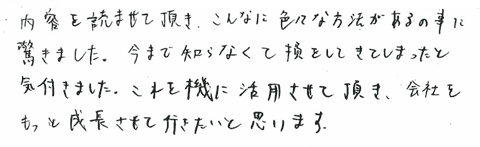 内容を読ませて頂き、こんなに色々な方法がある事に
驚きました。今まで知らなくて損をしてきてしまったと
気付きました。これを機に活用させて頂き、会社を
もっと成長させて行きたいと思います。